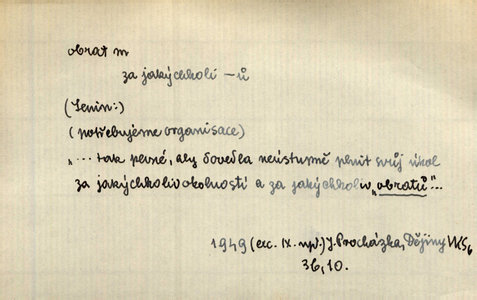 obrat m
za jakýchkoli –ů
(Lenin:)
(potřebujeme organisace)
„... tak pevné, aby dovedla neústupně plnit svůj úkol
za jakýchkoliv okolností a za jakýchkoliv „obratů"...
1949 (exc. IX. np.) J. Procházka, Dějiny VKS,
36, 10.